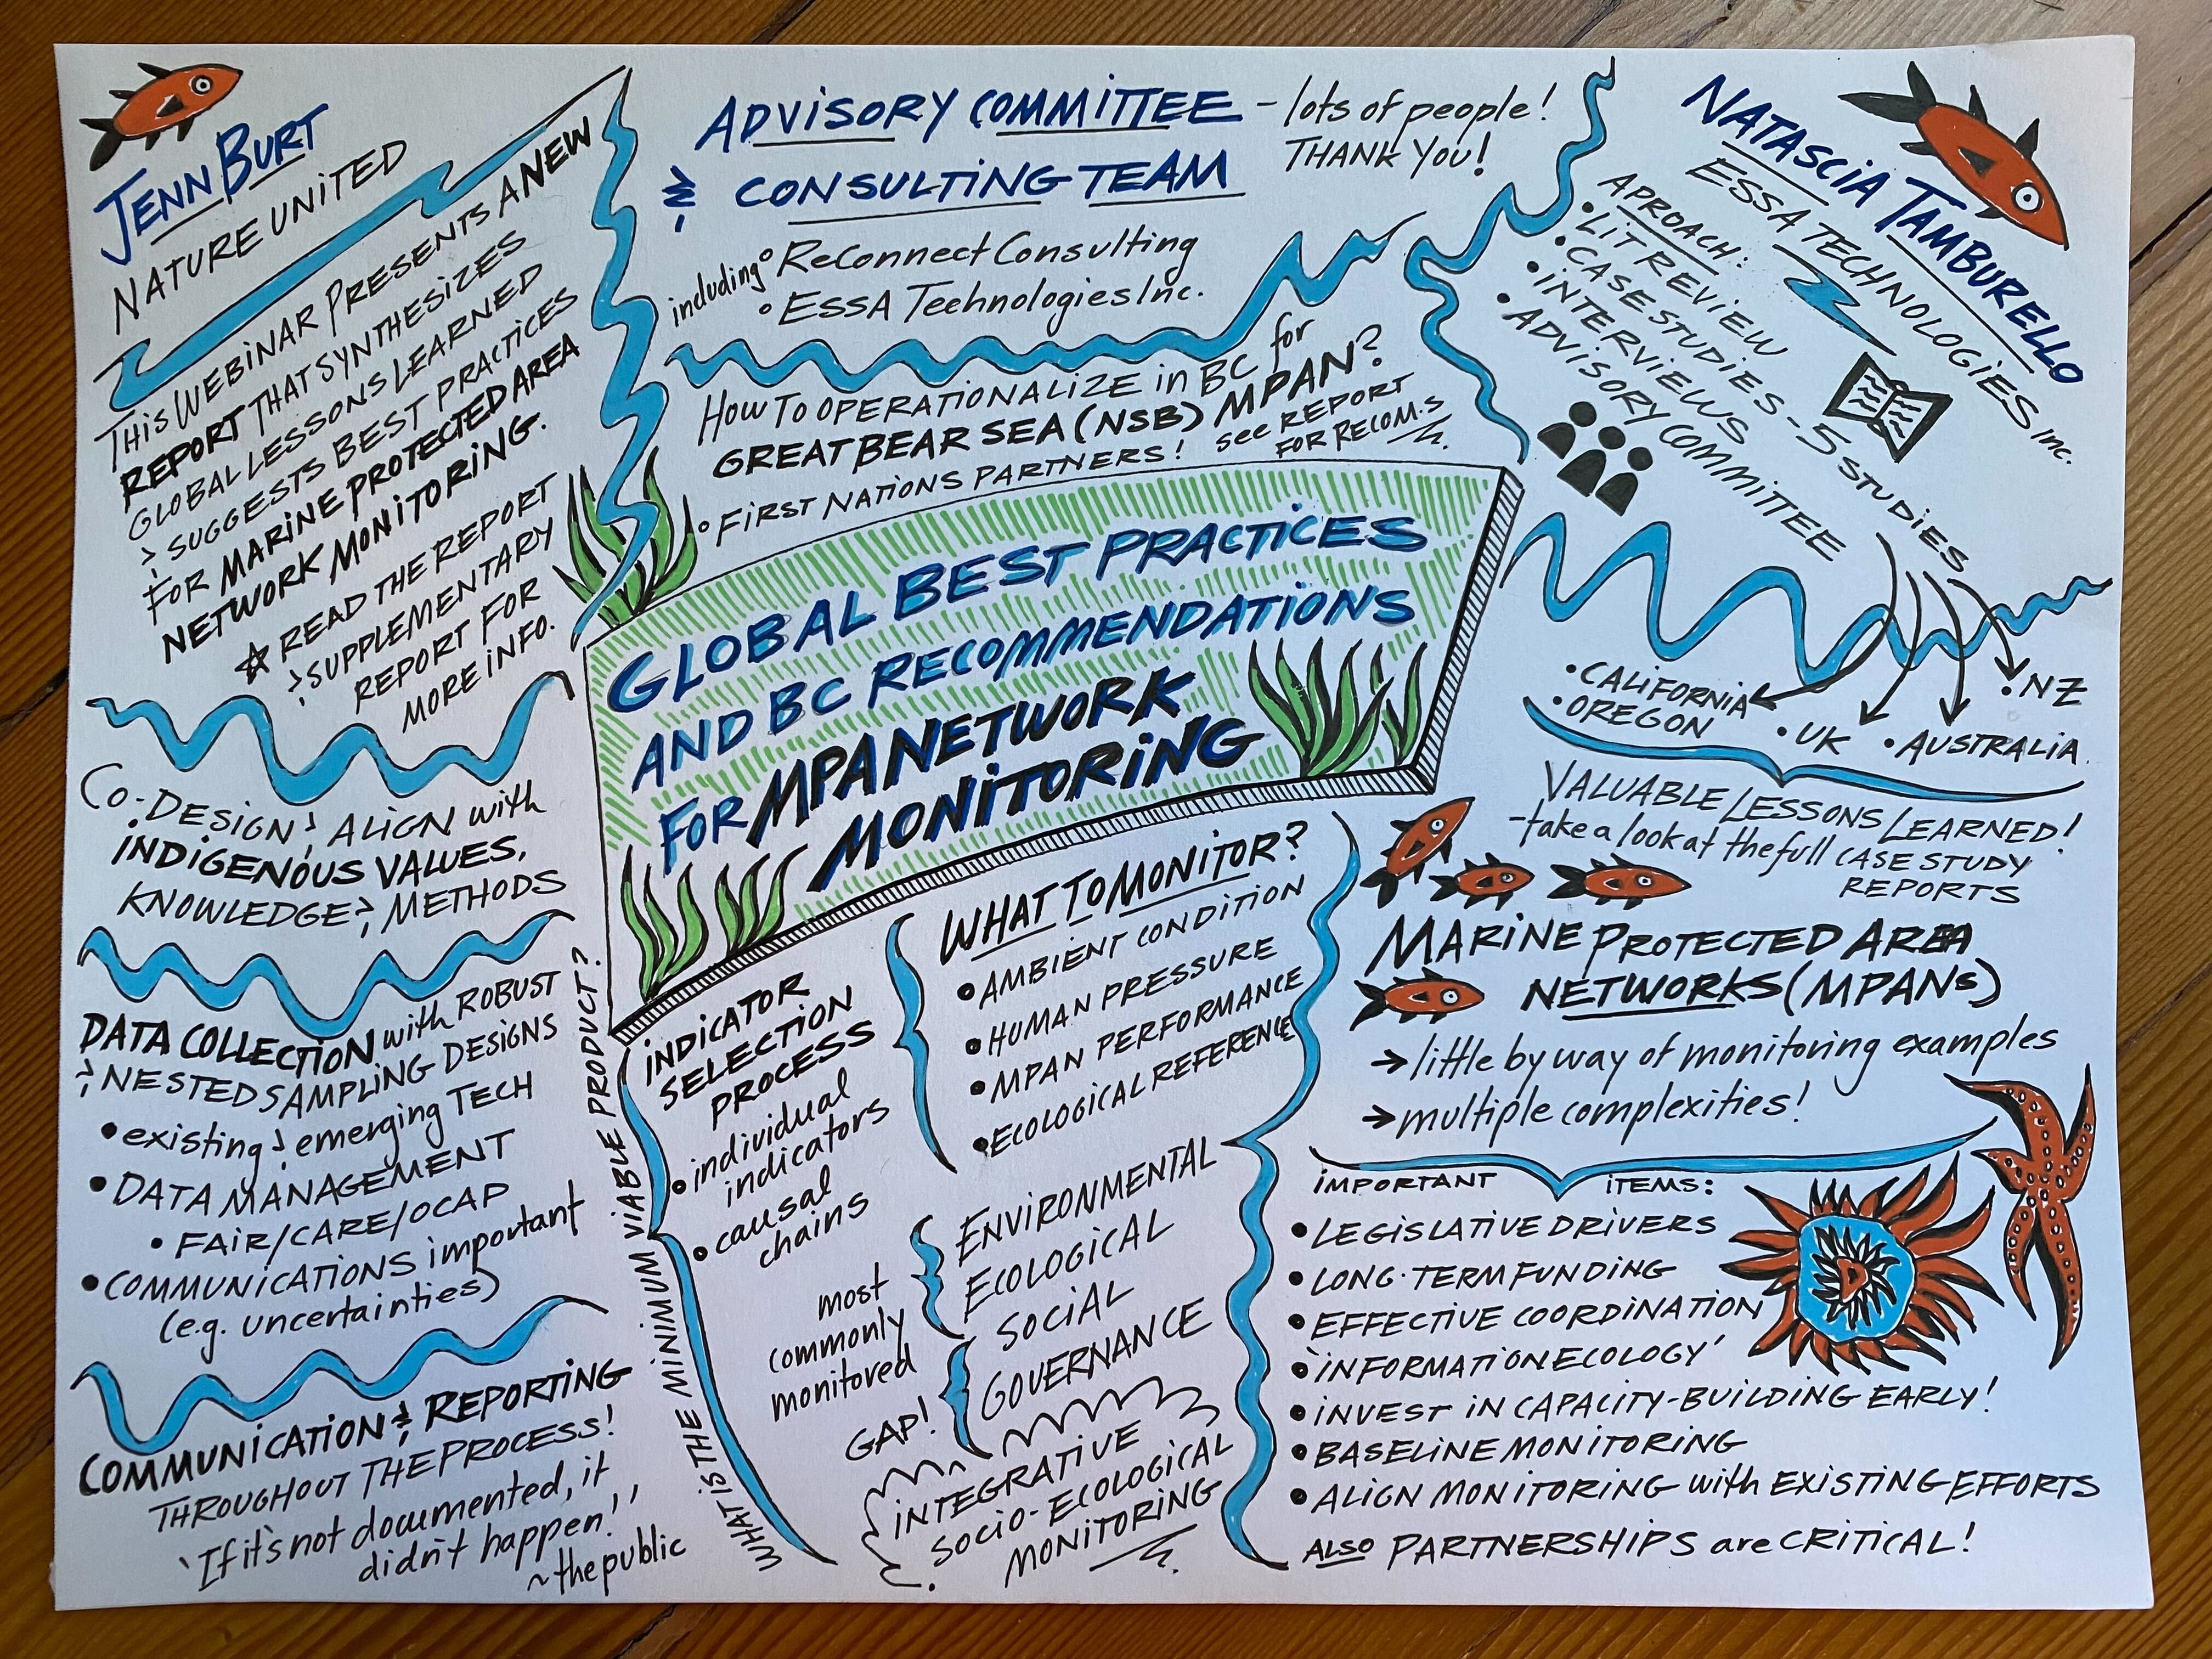 JENN BURT
NATURE UNITED
THIS WEBINAR PRESENTS A NEW
REPORT THAT SYNTHESIZES
GLOBAL LESSONS LEARNED
& SUGGESTS BEST PRACTICES
FOR MARINE PROTECTED AREA
NETWORK MONITORING.
☆ READ THE REPORT
& SUPPLEMENTARY
REPORT FOR
MORE INFO.
CO-DESIGN & ALIGN with
INDIGENOUS VALUES,
KNOWLEDGE & METHODS
DATA COLLECTION with ROBUST
& NESTED SAMPLING DESIGNS
• existing & emerging TECH
• DATA MANAGEMENT
• FAIR/CARE/OCAP
• COMMUNICATIONS important
(e.g. uncertainties)
COMMUNICATION & REPORTING
THROUGHOUT THE PROCESS!
'If it's not documented, it
didn't happen!'
~ the public
ADVISORY COMMITTEE - lots of people!
THANK YOU!
& CONSULTING TEAM
including • ReConnect Consulting
• ESSA Technologies Inc.
HOW TO OPERATIONALIZE in BC for
GREAT BEAR SEA (NSB) MPAN?
• FIRST NATIONS PARTNERS! see REPORT
FOR RECOM.S
GLOBAL BEST PRACTICES
AND BC RECOMMENDATIONS
FOR MPA NETWORK
MONITORING
WHAT IS THE MINIMUM VIABLE PRODUCT?
INDICATOR
SELECTION
PROCESS
• individual
indicators
• causal
chains
WHAT TO MONITOR?
• AMBIENT CONDITION
• HUMAN PRESSURE
• MPAN PERFORMANCE
• ECOLOGICAL REFERENCE
most
commonly
monitored
ENVIRONMENTAL
ECOLOGICAL
GAP!
SOCIAL
GOVERNANCE
INTEGRATIVE
SOCIO-ECOLOGICAL
MONITORING
NATASCIA TAMBURELLO
ESSA TECHNOLOGIES Inc.
APROACH:
• LIT REVIEW
• CASE STUDIES - 5 STUDIES
• INTERVIEWS
• ADVISORY COMMITTEE
• CALIFORNIA
• OREGON
• UK
• AUSTRALIA
• NZ
VALUABLE LESSONS LEARNED!
- take a look at the full CASE STUDY
REPORTS
MARINE PROTECTED AREA
NETWORKS (MPANs)
→ little by way of monitoring examples
→ multiple complexities!
IMPORTANT ITEMS:
• LEGISLATIVE DRIVERS
• LONG-TERM FUNDING
• EFFECTIVE COORDINATION
• 'INFORMATION ECOLOGY'
• INVEST IN CAPACITY-BUILDING EARLY!
• BASELINE MONITORING
• ALIGN MONITORING with EXISTING EFFORTS
ALSO PARTNERSHIPS are CRITICAL!